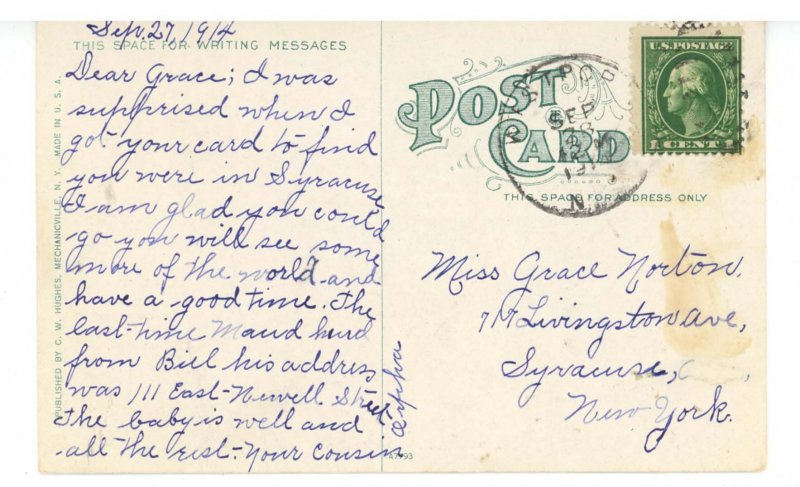 Sep. 27, 1914
THIS SPACE FOR WRITING MESSAGES
Dear Grace; I was
supprised when I
got your card to find
you were in Syracuse
I am glad you could
go you will see some
more of the world and
have a good time. The
last time Maud hurd
from Bill his address
was 111 East Newell Street
The baby is well and
all the rest. Your Cousin
Orpha
PUBLISHED BY C. W. HUGHES, MECHANICVILLE, N. Y. MADE IN U. S. A.
POST
CARD
THIS SPACE FOR ADDRESS ONLY
U.S. POSTAGE
1 CENT 1
SEP
28
N
Miss Grace Norton,
717 Livingston Ave,
Syracuse,
New York.